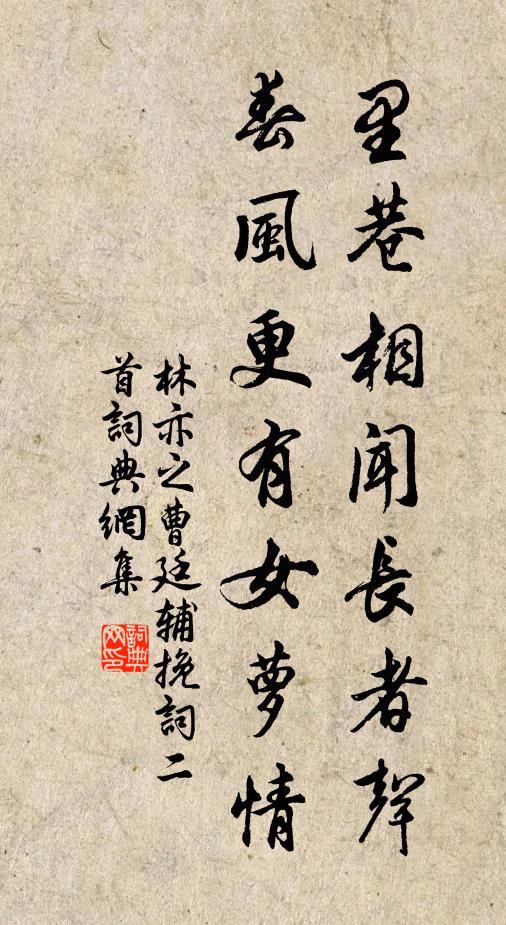 里巷相聞長者聲
春風更有女夢情
林亦之曹廷輔挽詞二
首詞典網集
詞典
网印